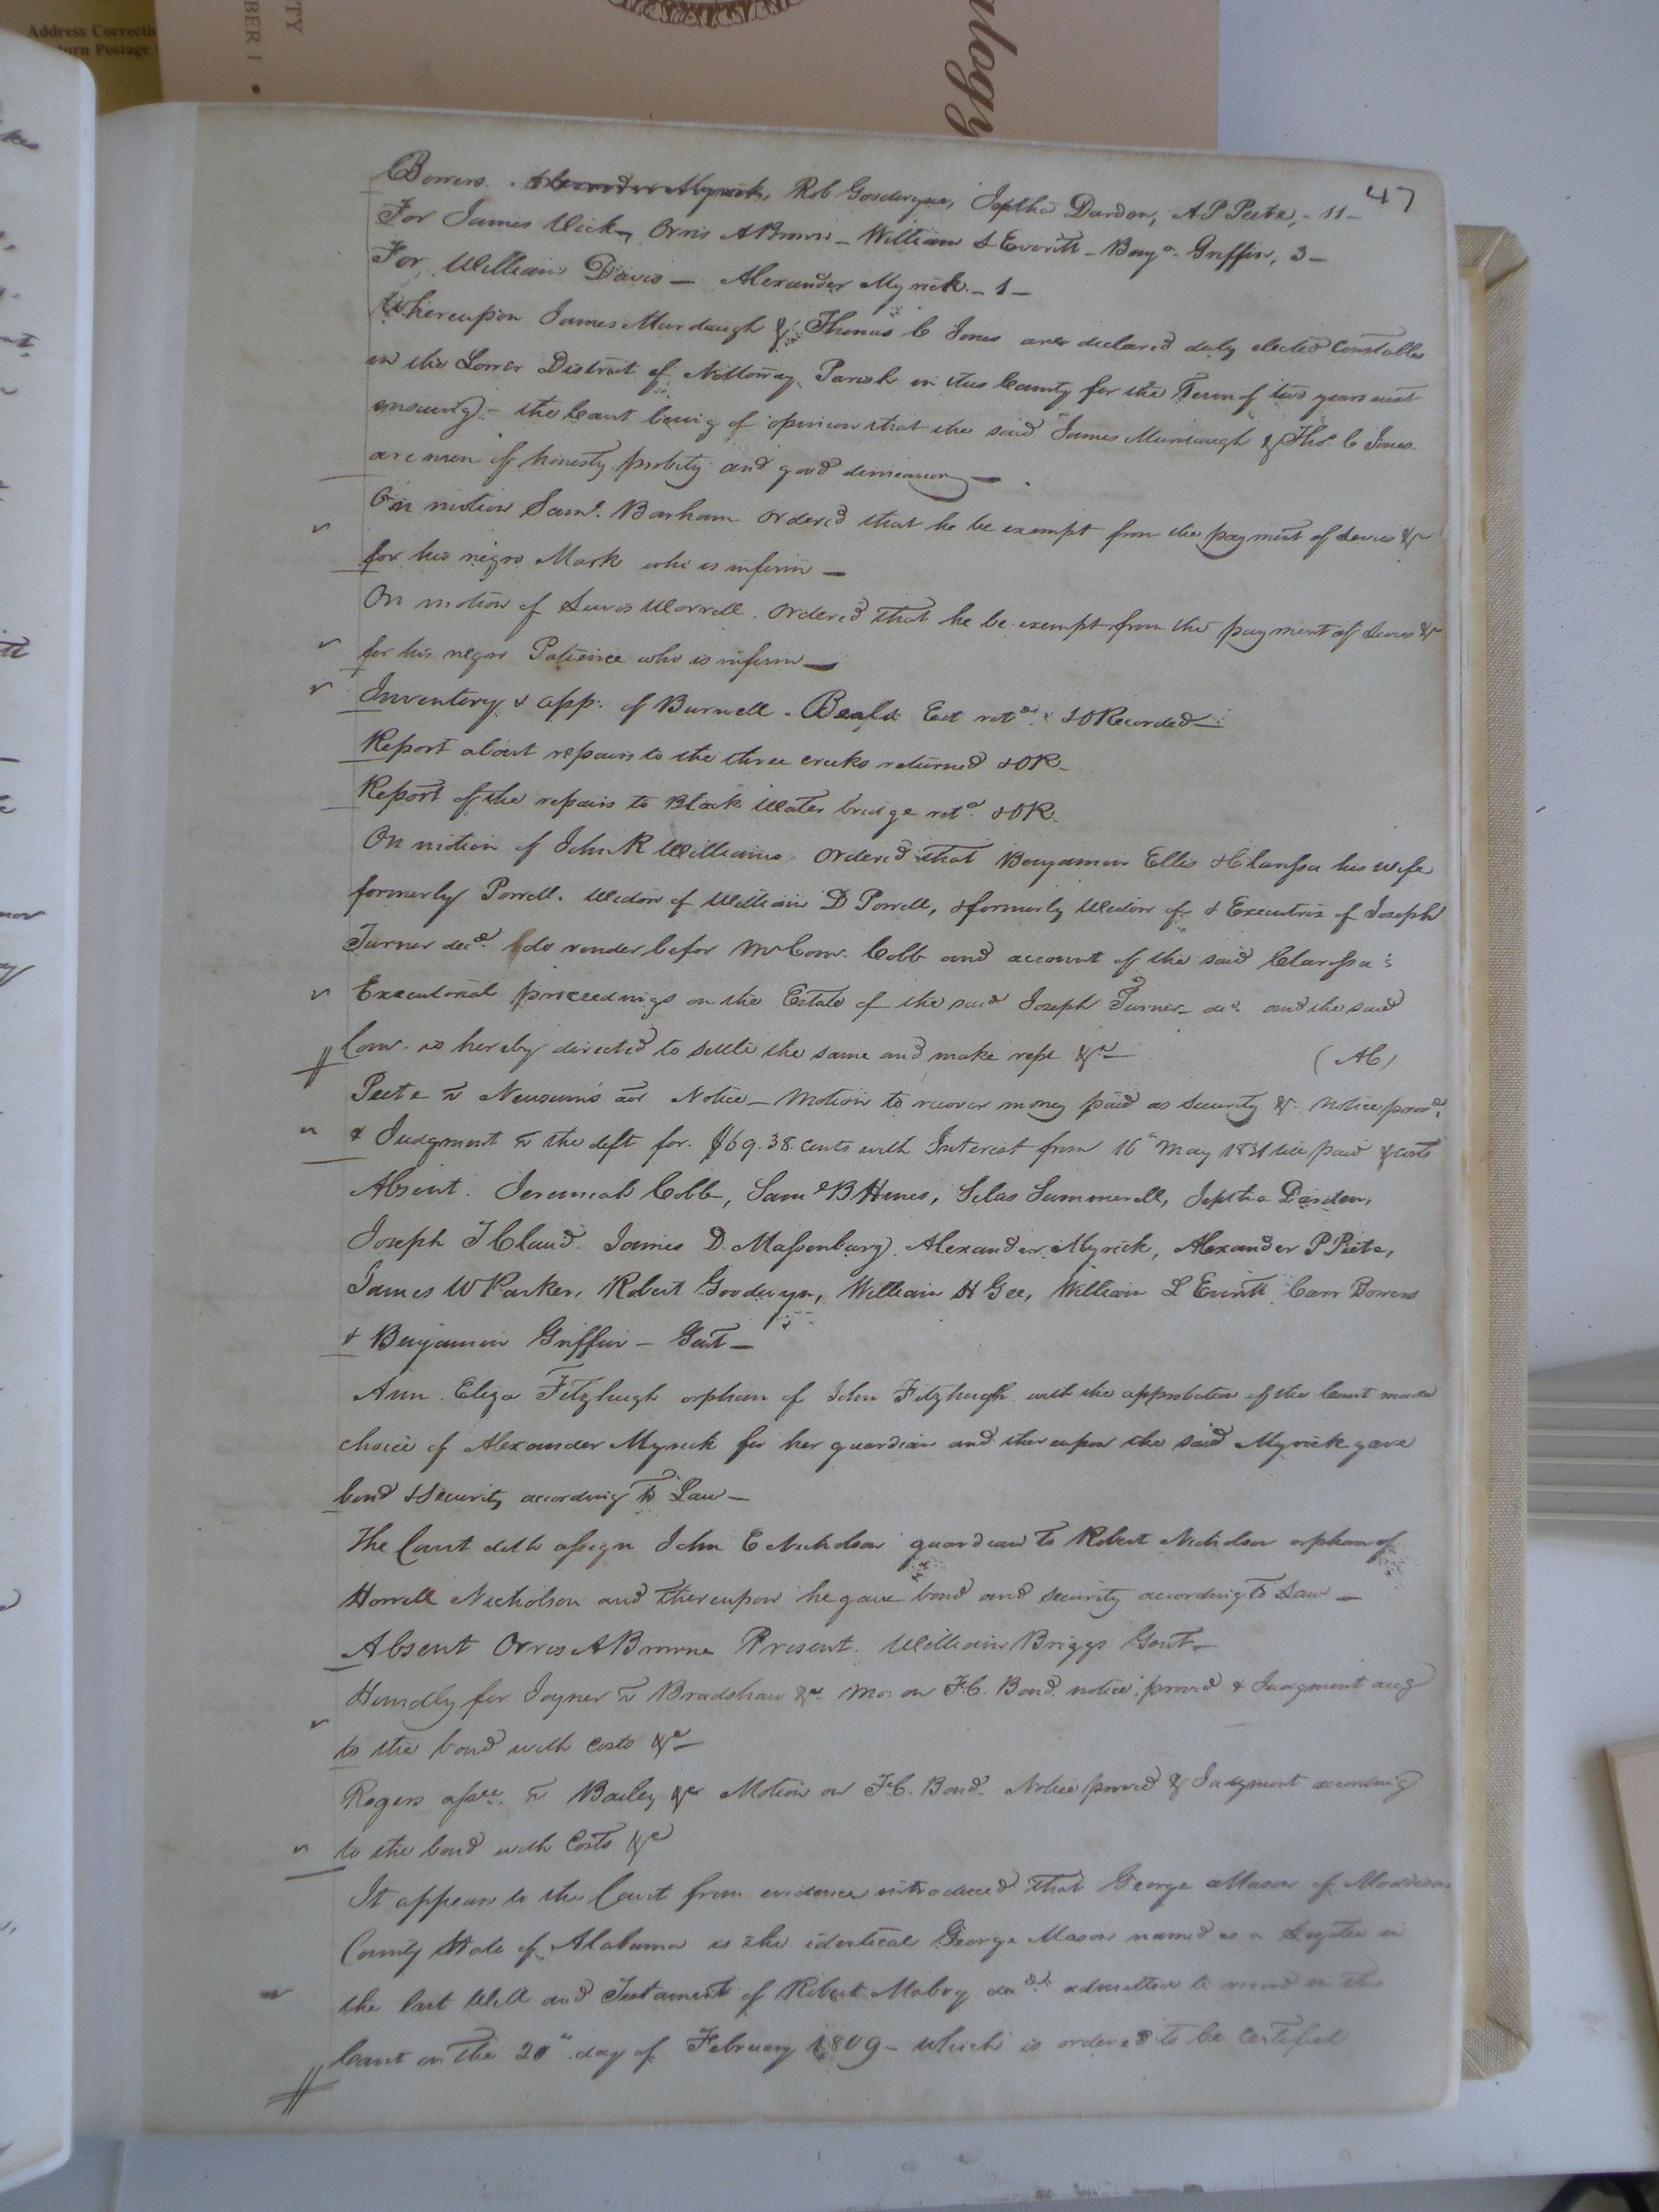 Address Correctio
turn Postage
TY
BER 1 •
ulogy
47
Bowers. Alexander Myrick, Rob Goodwyn, Jeptha Darden, A P Peete, - 11 -
For James Vick, Orris A Browne - William L Everitt - Benja. Griffin, 3 -
For William Davis - Alexander Myrick. - 1 -
Whereupon James Murdaugh & Thomas C Jones are declared duly elected Constables
in the Lower District of Nottoway Parish in this County for the Term of two years next
ensuing - the Court being of opinion that the said James Murdaugh & Thos. C Jones
are men of honesty probity and good demeanor -
On motion Saml. Barham ordered that he be exempt from the payment of Levies &c
for his negro Mark who is infirm -
On motion of Lewis Worrell. ordered that he be exempt from the payment of Levies &c
for his negro Patience who is infirm -
Inventory & app. of Burwell Beals Est retd. & O Recorded -
Report about repairs to the three creeks returned & OR -
Report of the repairs to Black Water bridge retd. & OR.
On motion of John R Williams ordered that Benjamin Ellis & Clarissa his wife
formerly Powell. Widow of William D Powell, & formerly Widow of & Executrix of Joseph
Turner decd. do render befor Mr Comr. Cobb and account of the said Clarissa's
Executorial proceedings on the Estate of the said Joseph Turner decd and the said
Comr. is hereby directed to settle the same and make repo &c (AC)
Peete vs Newsum's aor Notice - Motion to recover money paid as Security &c. Notice provd.
& Judgment vs the deft for. $69.38 cents with Interest from 16th May 1831 till paid & costs
Absent. Jeremiah Cobb, Saml B Hines, Silas Summerell, Jeptha Darden,
Joseph T Claud. James D. Massenburg. Alexander Myrick, Alexander P Peete,
James W Parker, Robert Goodwyn, William H Gee, William L Everitt Carr Bowers
& Benjamin Griffin - Gent -
Ann Eliza Fitzhugh orphan of John Fitzhugh with the approbation of the Court made
choice of Alexander Myrick for her guardian and thereupon the said Myrick gave
bond & Security according to Law -
The Court doth assign John E Nicholson guardian to Robert Nicholson orphan of
Howell Nicholson and thereupon he gave bond and security according to Law -
Absent Orris A Browne Present. William Briggs Gent -
Hundly for Joyner vs Bradshaw &c Mo: on F.C. Bond notice proved & Judgment accg
to the bond with Costs &c -
Rogers assee. vs Bailey &c Motion on F.C. Bond. Notice proved & Judgment according
to the bond with Costs &c
It appears to the Court from evidence introduced that George Mason of Maddison
County State of Alabama is the identical George Mason named as a Legatee in
the last Will and Testament of Robert Mabry decd. admitted to record in this
Court on the 20th day of February 1809 - which is ordered to be Certified